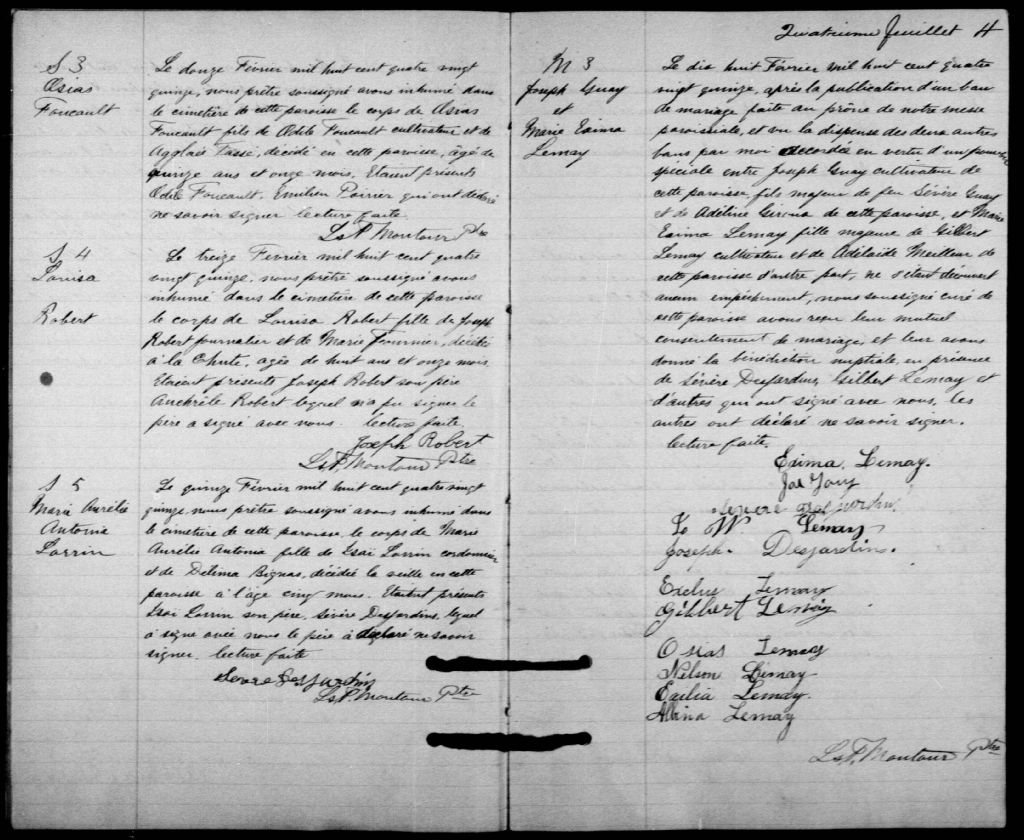 S 3
Osias
Foucault
Le douze Février mil huit cent quatre vingt
quinze, nous prêtre soussigné avons inhumé dans
le cimetière de cette paroisse le corps de Osias
Foucault fils de Odile Foucault cultivateur et de
décidé en cette paroisse, âgé de
quinze ans et onze mois. Etaient présents
Odile Foucault, Emilien Poirier qui ont déclaré
ne savoir signer lecture faite.
Ls P. Montour Ptre
S 4
Louisa
Robert
Le treize Février mil huit cent quatre
vingt quinze, nous prêtre soussigné avons
inhumé dans le cimetière de cette paroisse
le corps de Louisa Robert fille de Joseph
Robert journalier et de Marie Fournier, décidée
à la Chute, agés de huit ans et onze mois.
Etaient présents Joseph Robert son père
Robert lequel n'a pu signer le
père a signé avec nous. lecture faite
Joseph Robert
Ls P. Montour Ptre
S 5
Marie Aurélie
Antonia
Lorrin
Le quinze Février mil huit cent quatre vingt
quinze, nous prêtre soussigné avons inhumé dans
le cimetière de cette paroisse, le corps de Marie
Aurélie Antonia fille de Esai Lorrin cordonnier
et de Délima Bigras, décidée la veille en cette
paroisse à l'âge cinq mois. Etaient présents
Esai Lorrin son père, Sévère Desjardins, lequel
a signé avec nous le père à déclaré ne savoir
signer. lecture faite
Severe Desjardins
Ls P. Montour Ptre
Quatrieme feuillet 4
M 3
Joseph Guay
et
Marie Exima
Lemay
Le dix huit Février mil huit cent quatre
vingt quinze, après la publication d'un ban
de mariage faite au prône de notre messe
paroissiale, et vu la dispense des deux autres
bans par moi accordée en vertu d'un pouvoir
spéciale entre Joseph Guay cultivateur de
cette paroisse, fils majeur de feu Sévère Guay
et de Adéline Giroux de cette paroisse, et Marie
Exima Lemay fille majeure de Gilbert
Lemay cultivateur et de Adélaide Meilleur de
cette paroisse d'autre part, ne s'étant découvert
aucun empêchement, nous soussigné curé de
cette paroisse avons reçu leur mutuel
consentement de mariage, et leur avons
donné la bénédiction nuptiale en présence
de Sévère Desjardins, Gilbert Lemay et
d'autres qui ont signé avec nous, les
autres ont déclaré ne savoir signer.
lecture faite.
Exima Lemay.
severe desjardins
W Lemay
Joseph. Desjardin.
Lemay
Gilbert Lemay
Osias Lemay
Nelson Lemay
Exilia Lemay.
Albina Lemay
Ls P. Montour Ptre